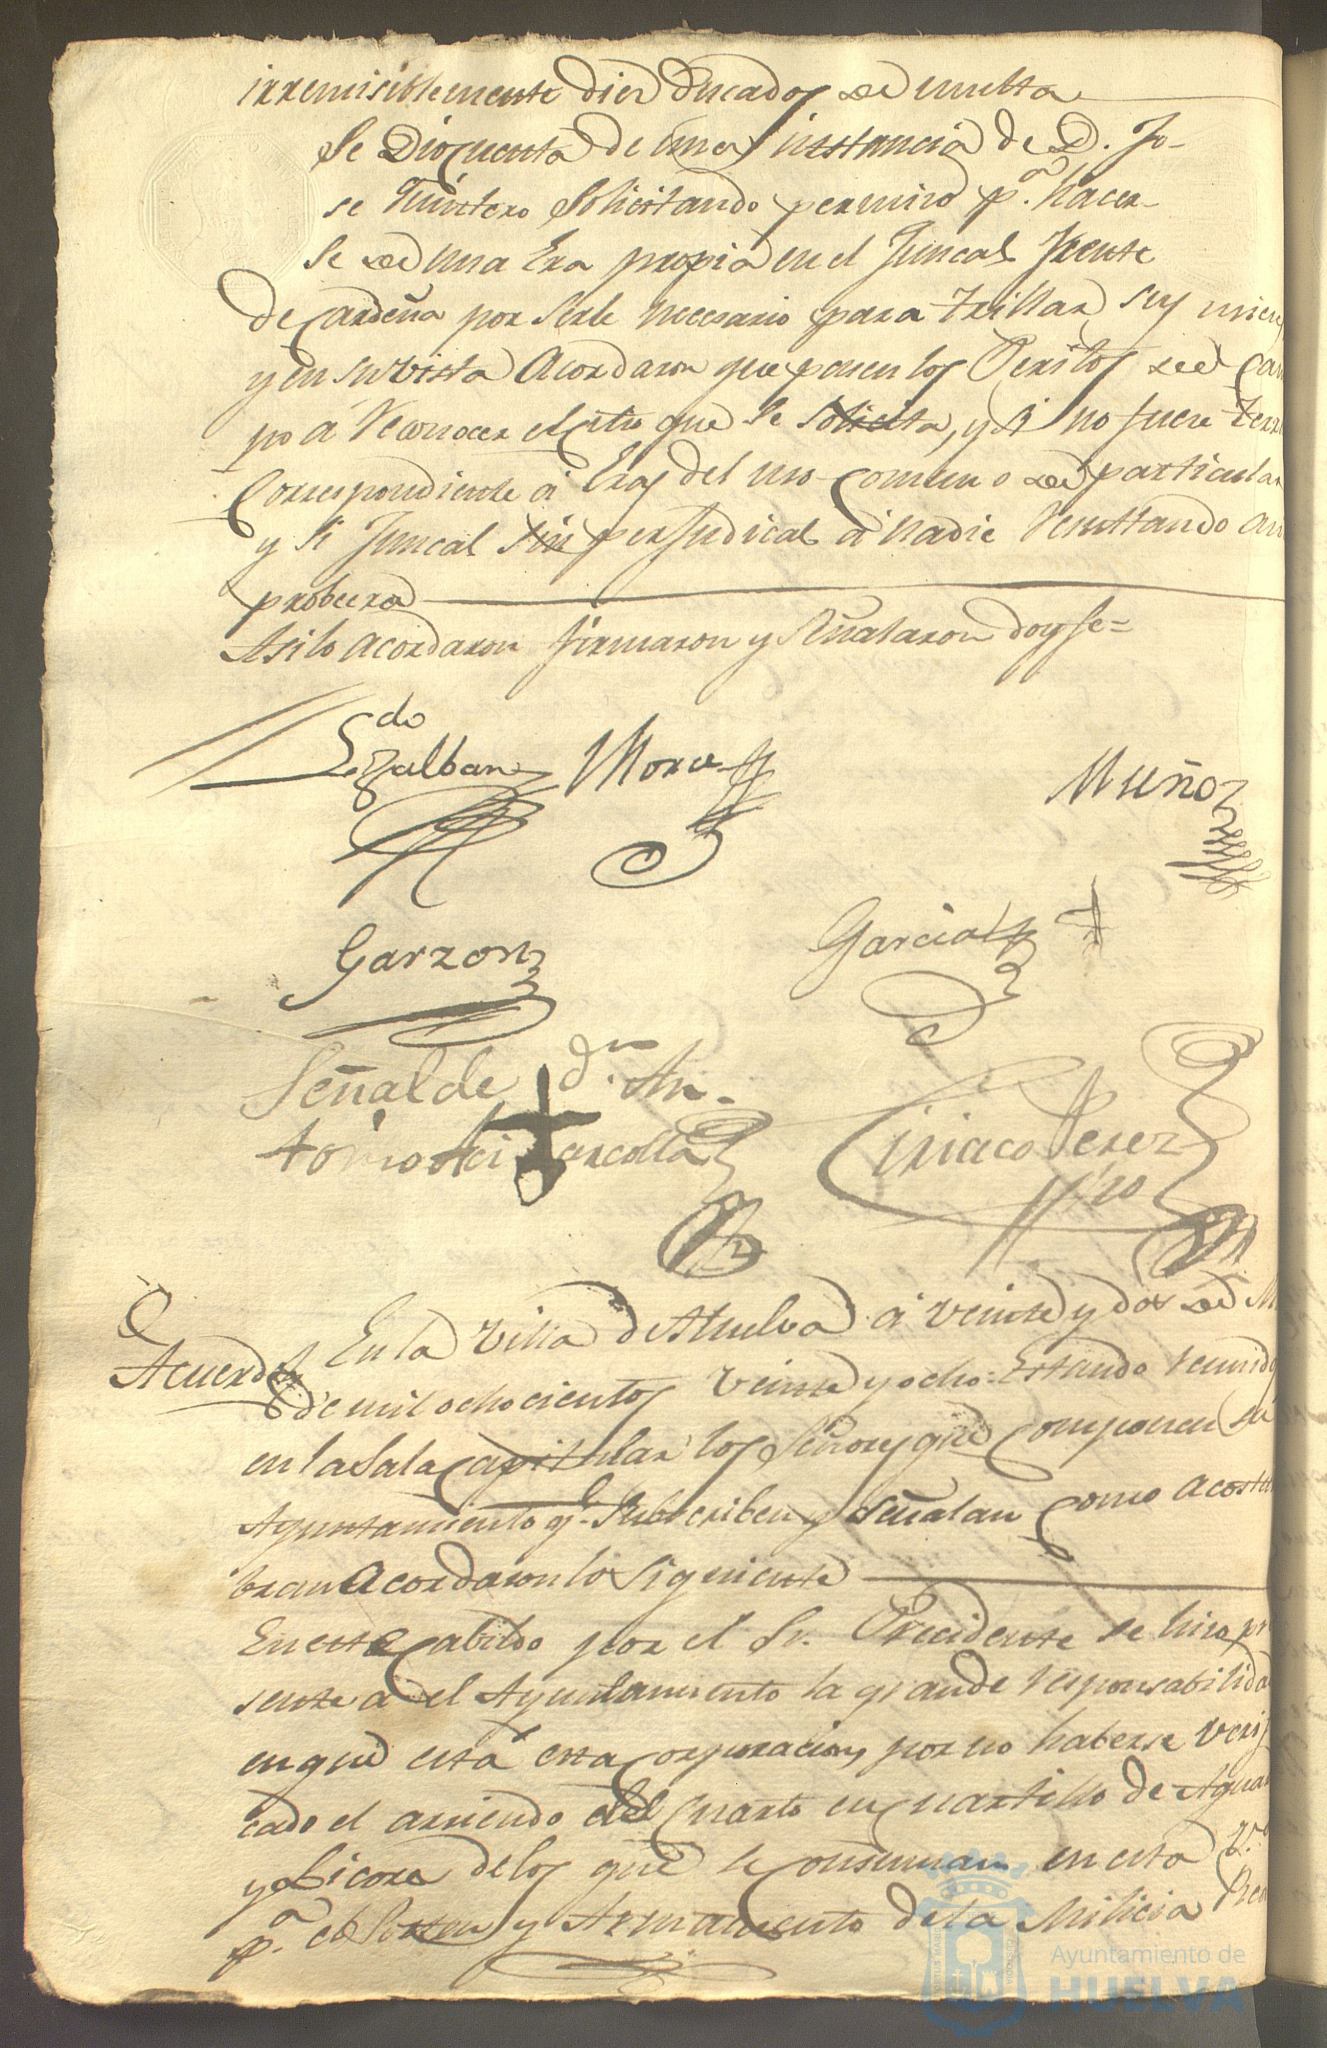 irremisiblemente diez Ducados de multa
Se Dio cuenta de una instancia de D. Jo-
se Quintero Solicitando permiso pa. hacer-
se de una Era propia en el Juncal frente
de Cardeña por serle necesario para trillar sus
y en su vista Acordaron que pasen los Peritos de Cam
po a reconocer el sitio que se solicita, y si no fuere terre
Correspondiente a Eras del uso comun o de particular
y si Juncal sin perjudical a nadie resultando
probeera
Asi lo acordaron firmaron y señalaron doy fe=
Ldo
Muñoz
Garzon
Garcia
Señal de dn. An-
tonio
Ciriaco Perez
Acuerdo
En la Villa de Huelva a veinte y dos de M
de mil ochocientos veinte y ocho: Estando reunido
en la Sala Capitular los Señores que componen su
Ayuntamiento q. Subscriben y señalan como acostu
bran Acordaron lo Siguiente
En este Cabildo por el Sr. Precidente se hiso pre
sente a el Ayuntamiento la grande responsabilidad
en que está esta Corporacion, por no haberse verif
cado el arriendo del Cuarto en Cuartillo de Aguar
y Licores de los que se Consuman en esta Va.
pa. el y Armamento de la Milicia
Ayuntamiento de
HUELVA